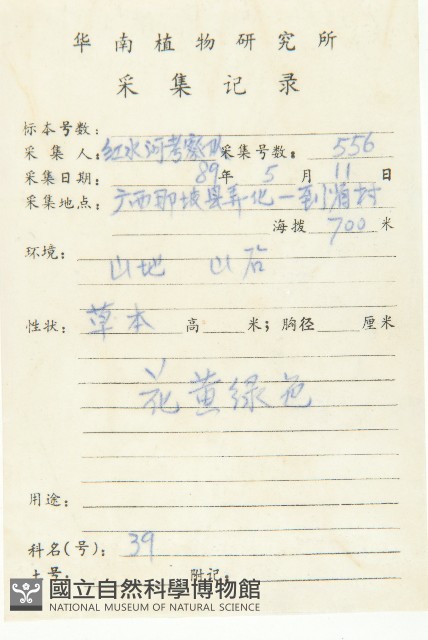 华南植物研究所
采集记录
标本号数:
采集人: 红水河考察队 采集号数: 556
采集日期: 89年 5月 11日
采集地点: 广西那坡县弄化一到 村
海拨 700 米
环境:
山地 山谷
性状: 草本 高 米; 胸径 厘米
花黄绿色
用途:
科名(号): 39
土号: 附记:
國立自然科學博物館
NATIONAL MUSEUM OF NATURAL SCIENCE